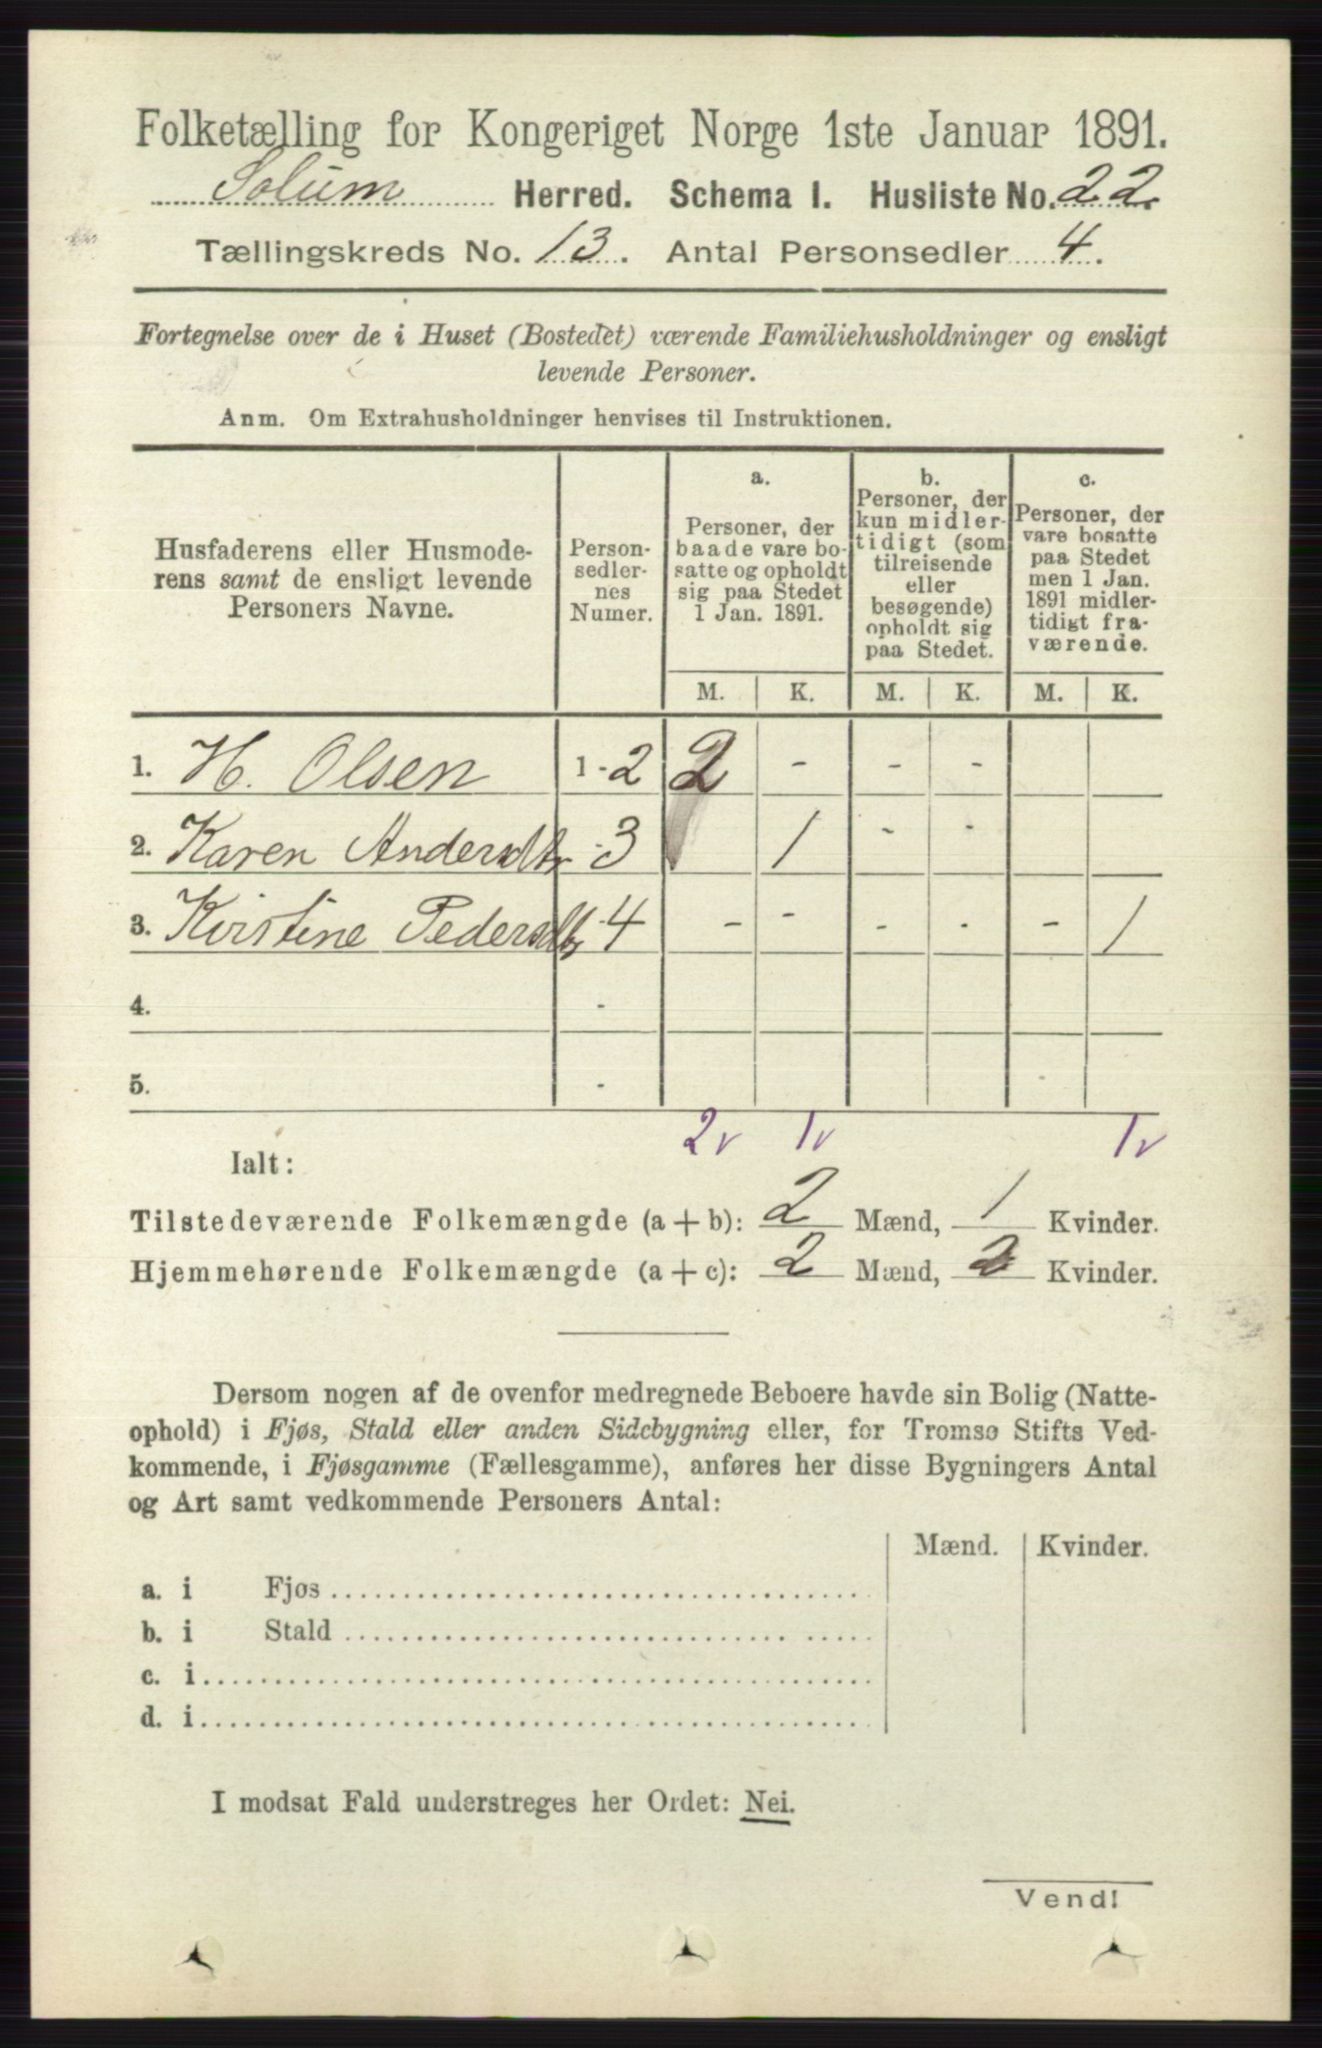 Folketælling for Kongeriget Norge 1ste Januar 1891.
Solum Herred. Schema I. Husliste No. 22.
Tællingskreds No. 13. Antal Personsedler 4.
Fortegnelse over de i Huset (Bostedet) værende Familiehusholdninger og ensligt
levende Personer.
Anm. Om Extrahusholdninger henvises til Instruktionen.
Husfaderens eller Husmode-
rens samt de ensligt levende
Personers Navne.
Person-
sedler-
nes
Numer.
a.
Personer, der
baade vare bo-
satte og opholdt
sig paa Stedet
1 Jan. 1891.
b.
Personer, der
kun midler-
tidigt (som
tilreisende
eller
besøgende)
opholdt sig
paa Stedet.
c.
Personer, der
vare bosatte
paa Stedet
men 1 Jan.
1891 midler-
tidigt fra-
værende.
M. K. M. K. M. K.
1. H. Olsen 1-2 2 - - -
2. Karen Andersdtr -3 1 - -
3. Kirstine Pedersdtr -4 - - - - - 1
4. -
5. -
2v 1v 1v
Ialt:
Tilstedeværende Folkemængde (a + b): 2 Mænd, 1 Kvinder.
Hjemmehørende Folkemængde (a + c): 2 Mænd, 2 Kvinder.
Dersom nogen af de ovenfor medregnede Beboere havde sin Bolig (Natte-
ophold) i Fjøs, Stald eller anden Sidebygning eller, for Tromsø Stifts Ved-
kommende, i Fjøsgamme (Fællesgamme), anføres her disse Bygningers Antal
og Art samt vedkommende Personers Antal:
Mænd. Kvinder.
a. i Fjøs
b. i Stald
c. i
d. i
I modsat Fald understreges her Ordet: Nei.
Vend!